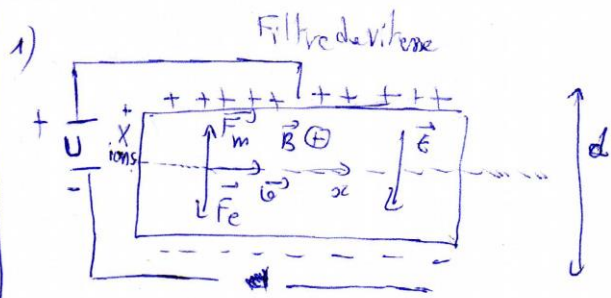 1) Filtre de vitesse
+ + + + + + + + + +
+ U - + X ions F_m B ⊕ E d
F_e v x
- - - - - - -